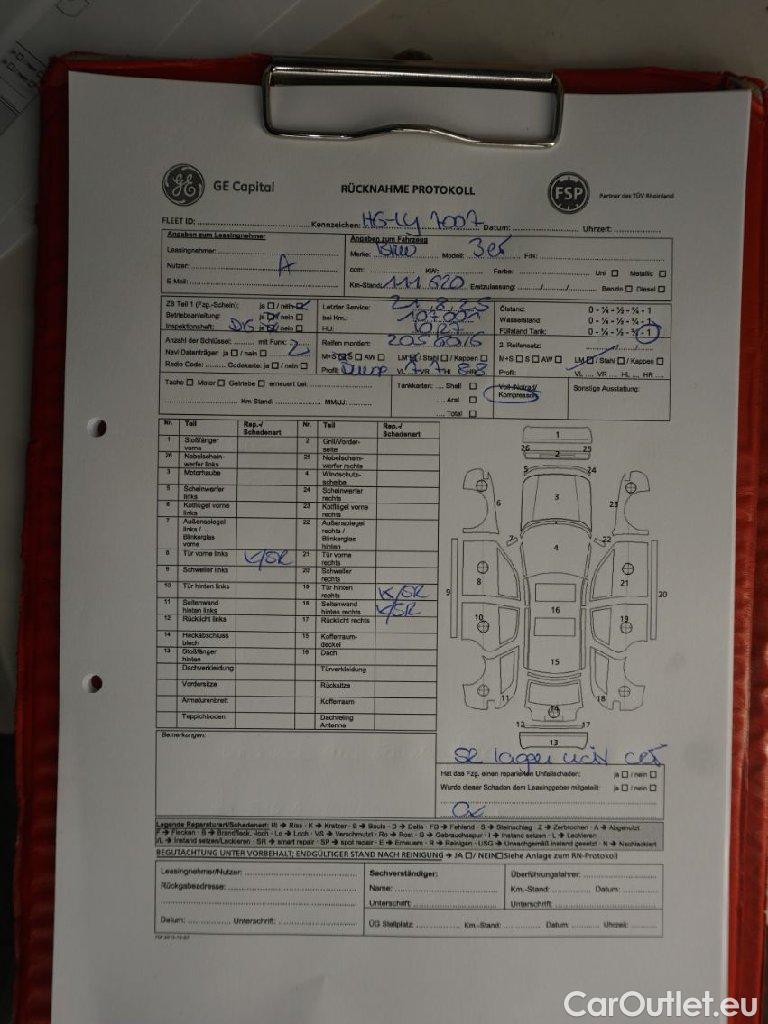 GE Capital RÜCKNAHME PROTOKOLL FSP Partner des TÜV Rheinland
FLEET ID: Kennzeichen: HG-LY 7007 Datum: Uhrzeit:
Angaben zum Leasingnehmer Angaben zum Fahrzeug
Leasingnehmer: Marke: BMW Modell: 3er FIN:
Nutzer: A ccm: KW: Farbe: Uni Metallic
E-Mail: Km-Stand: 111 520 Erstzulassung: Benzin Diesel
ZB Teil 1 (Fzg.-Schein): ja / nein Letzter Service: Ölstand: 0 - ¼ - ½ - ¾ - 1
Betriebsanleitung: ja / nein bei Km: Wasserstand 0 - ¼ - ½ - ¾ - 1
Inspektionsheft: ja / nein HU: Füllstand Tank: 0 - ¼ - ½ - ¾ - 1
Anzahl der Schlüssel: mit Funk: 2 Reifen montiert: 205 60 16 2. Reifensatz:
Navi Datenträger ja / nein M+S S AW LM / Stahl / Kappen M+S S AW LM / Stahl / Kappen
Radio Code: Codekarte: ja / nein Profil: VL VR HL HR Profil: VL VR HL HR
Tacho Motor Getriebe erneuert bei: Tankkarten: Shell Voll-Notrad/ Sonstige Ausstattung:
Aral Kompressor
Km Stand MM/JJ: Total
Nr. Teil Rep.-/ Schadenart Nr. Teil Rep.-/ Schadenart
1 Stoßfänger vorne 2 Grill/Vorderseite
26 Nebelscheinwerfer links 25 Nebelscheinwerfer rechts
3 Motorhaube 4 Windschutzscheibe
5 Scheinwerfer links 24 Scheinwerfer rechts
6 Kotflügel vorne links 23 Kotflügel vorne rechts
7 Außenspiegel links / Blinkerglas vorne 22 Außenspiegel rechts / Blinkerglas hinten
8 Tür vorne links K/SR 21 Tür vorne rechts
9 Schweller links 20 Schweller rechts
10 Tür hinten links 19 Tür hinten rechts K/SR
11 Seitenwand hinten links 18 Seitenwand hinten rechts K/SR
12 Rücklicht links 17 Rücklicht rechts
14 Heckabschlussblech 15 Kofferraumdeckel
13 Stoßfänger hinten 16 Dach
Dachverkleidung Türverkleidung
Vordersitze Rücksitze
Armaturenbrett Kofferraum
Teppichboden Dachreling Antenne
1
26 2 25
5 24
6 3 23
7 22
4
8 21
9 20
16
10 19
15
11 18
14
12 17
13
Bemerkungen:
Hat das Fzg. einen reparierten Unfallschaden: ja / nein
Wurde dieser Schaden dem Leasinggeber mitgeteilt: ja / nein
Legende Reparaturart/Schadenart: RI → Riss - K → Kratzer - B → Beule - D → Delle - FD → Fehlend - S → Steinschlag - Z → Zerbrochen - A → Abgenutzt
BEGUTACHTUNG UNTER VORBEHALT; ENDGÜLTIGER STAND NACH REINIGUNG → JA / NEIN Siehe Anlage zum RN-Protokoll
Leasingnehmer/Nutzer: Sachverständiger: Überführungsfahrer:
Rückgabeadresse: Name: Km.-Stand: Datum:
Unterschrift: Unterschrift
Datum: Unterschrift: ÜG Stellplatz: Km.-Stand: Datum Uhrzeit:
CarOutlet.eu